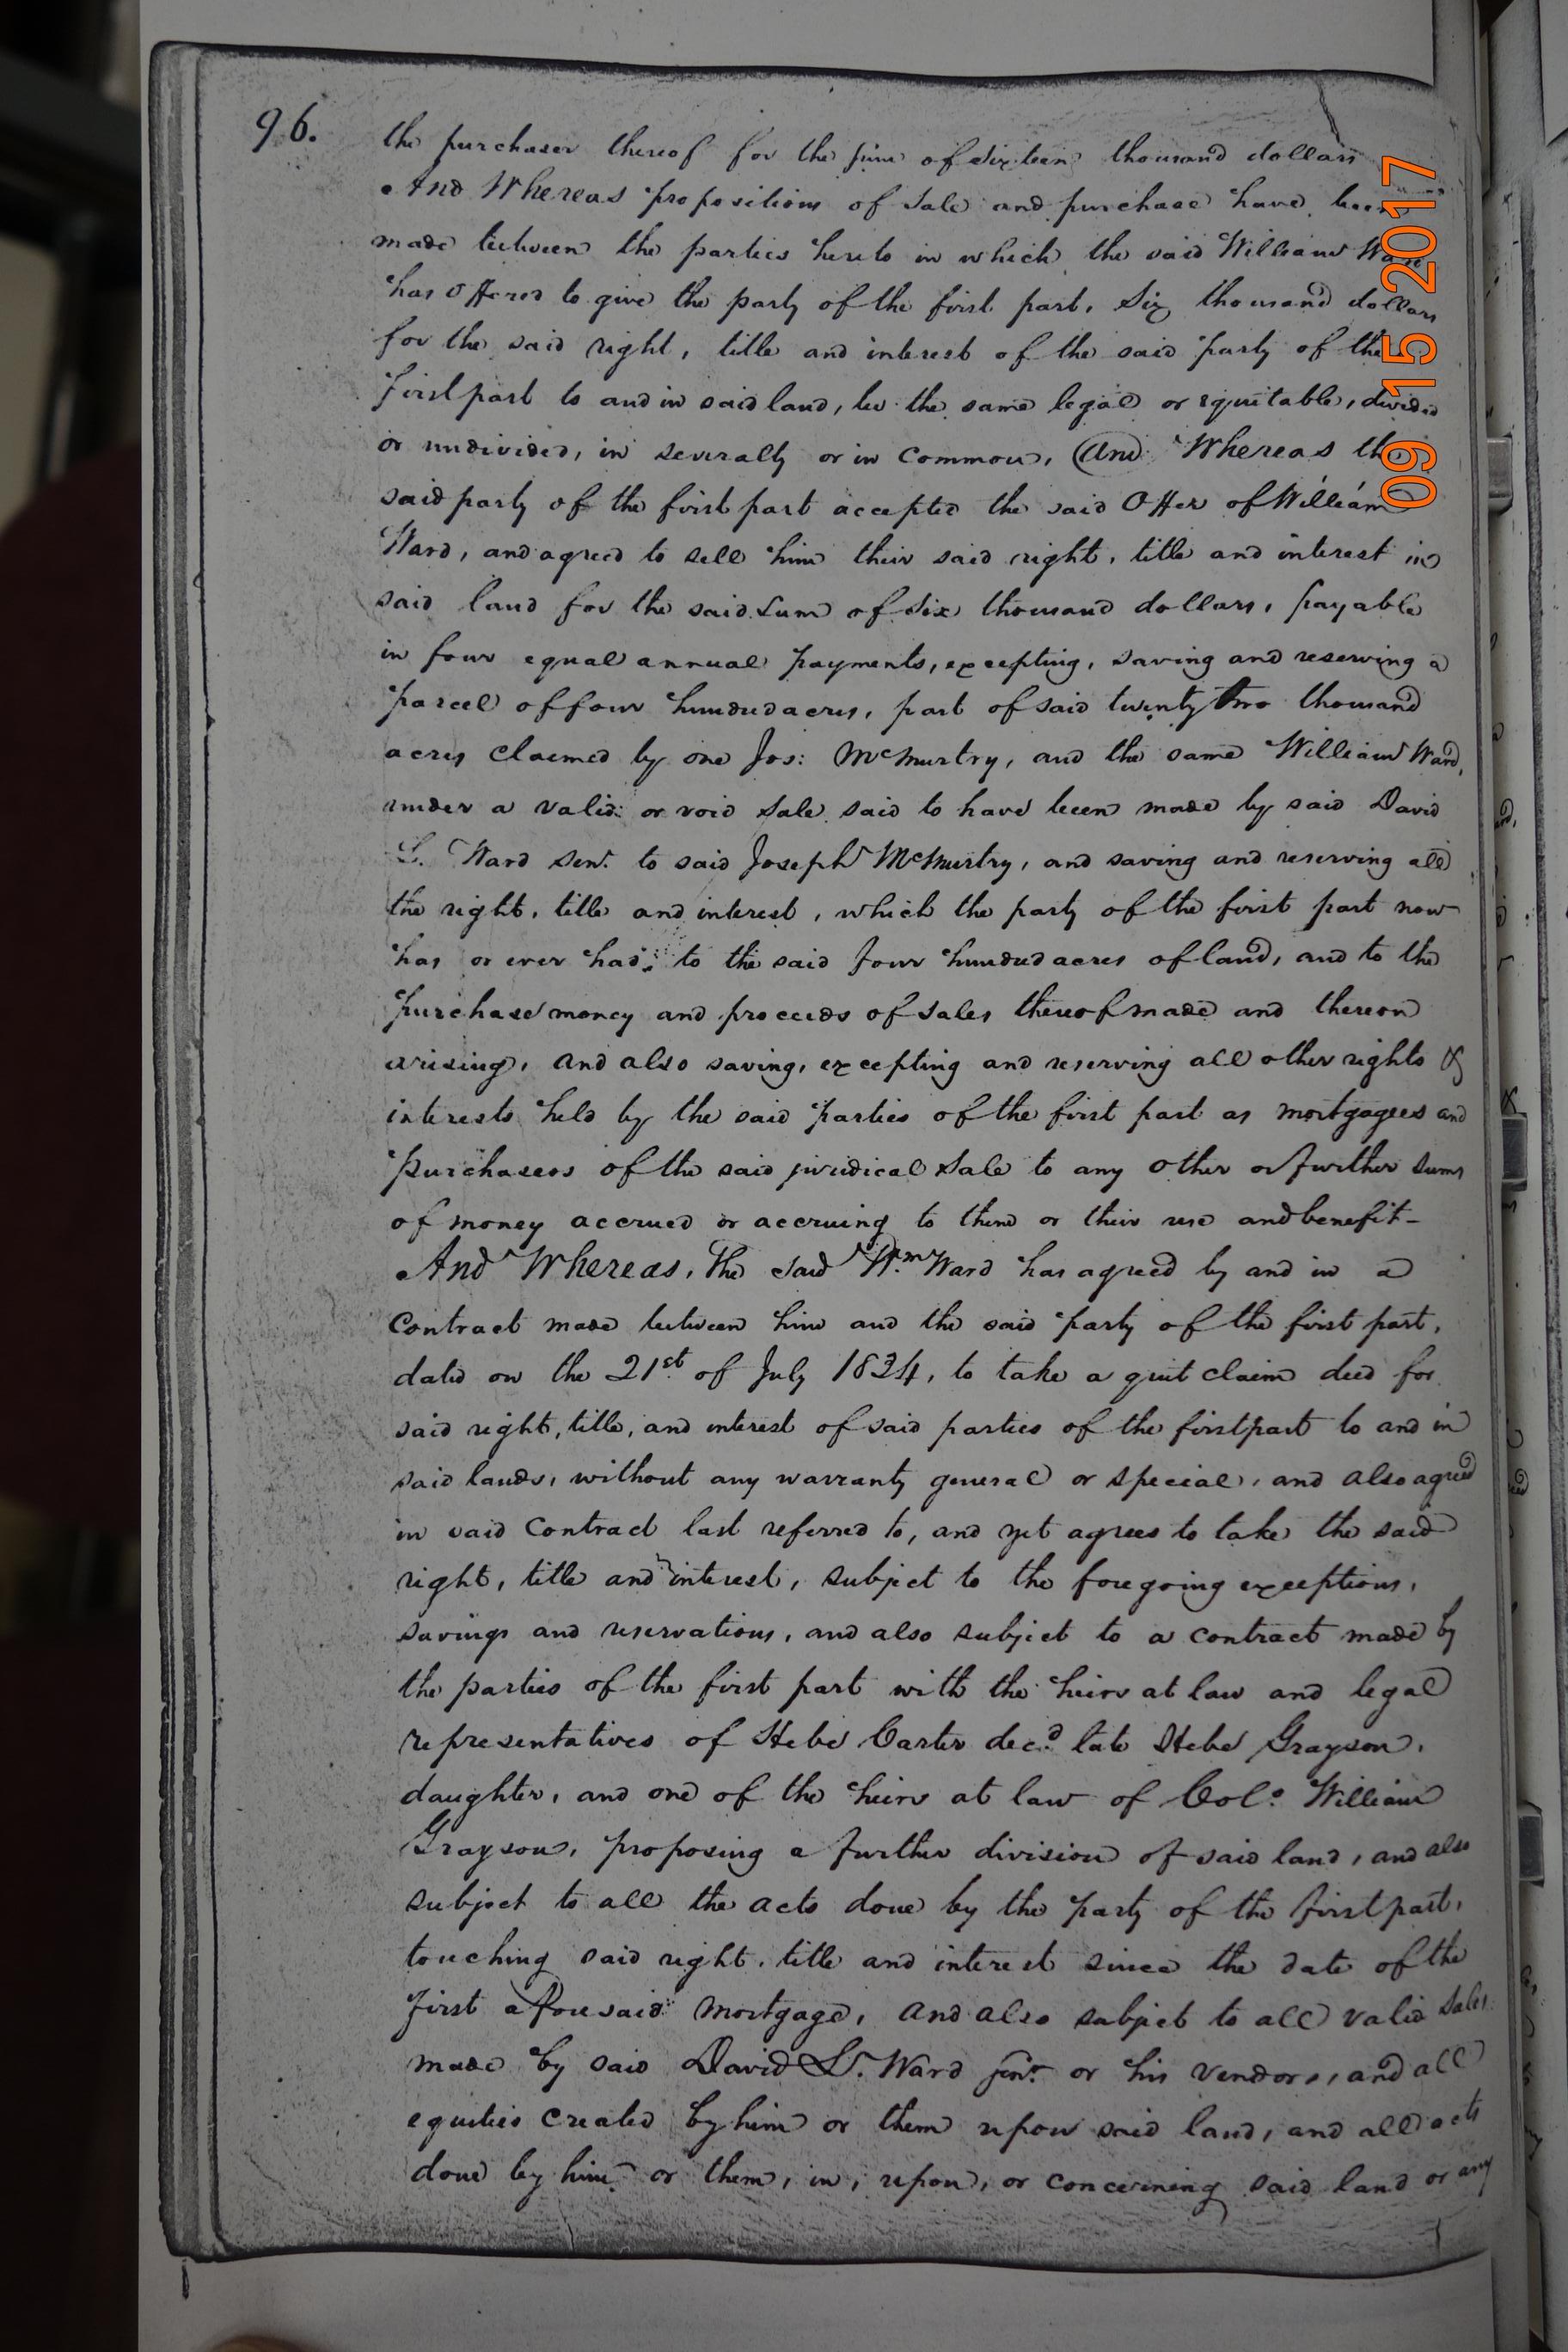 96.
the purchaser thereof for the sum of Sixteen thousand dollars
And Whereas propositions of Sale and purchase have been
made between the parties hereto in which the said William Ward
has offered to give the party of the first part, Six thousand dollars
for the said right, title and interest of the said party of the
first part to and in said land, be the same legal or equitable, divided
or undivided, in severalty or in common, And Whereas the
said party of the first part accepted the said Offer of William
Ward, and agreed to sell him their said right, title and interest in
said land for the said sum of Six thousand dollars, payable
in four equal annual payments, excepting, saving and reserving a
parcel of four hundred acres, part of said twenty two thousand
acres claimed by one Jos: McMurtry, and the same William Ward,
under a valid or void sale said to have been made by said David
L. Ward Senr. to said Joseph McMurtry, and saving and reserving all
the right, title and interest, which the party of the first part now
has or ever had, to the said four hundred acres of land, and to the
purchase money and proceeds of sales thereof made and thereon
arising, and also saving, excepting and reserving all other rights &
interests held by the said parties of the first part as mortgagees and
purchasers of the said juridical Sale to any other or further sums
of money accrued or accruing to them or their use and benefit-
And Whereas, The said Wm. Ward has agreed by and in a
Contract made between him and the said party of the first part,
dated on the 21st. of July 1834, to take a quit claim deed for
said right, title, and interest of said parties of the first part to and in
said lands, without any warranty general or special, and also agreed
in said Contract last referred to, and yet agrees to take the said
right, title and interest, subject to the foregoing exceptions,
savings and reservations, and also subject to a contract made by
the parties of the first part with the heirs at law and legal
representatives of Hebe Carter decd. late Hebe Grayson,
daughter, and one of the heirs at law of Colo. William
Grayson, proposing a further division of said land, and also
subject to all the acts done by the party of the first part,
touching said right, title and interest since the date of the
first aforesaid mortgage, and also subject to all valid sales
made by said David L. Ward Senr. or his vendors, and all
equities created by him or them upon said land, and all acts
done by him or them, in, upon, or concerning said land or any
09 15 2017